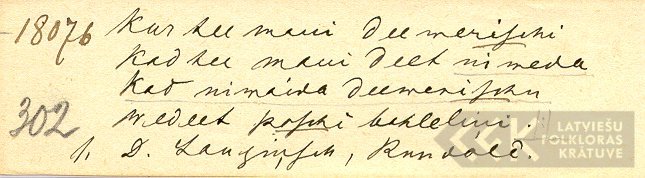 18076 Kur tee mani deewerischi
Kad tee mani deet nimeda
Kad nimáida deewerischu
wedeet paschi bahleliņi.
302
1. D. Lauginsch, Rundálê.
LATVIEŠU
FOLKLORAS
KRĀTUVE